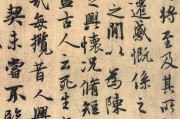 將至及其所
遷感慨係之
之間以為陳
之興懷況脩短
盡古人云死生
每攬昔人興
契未嘗不臨